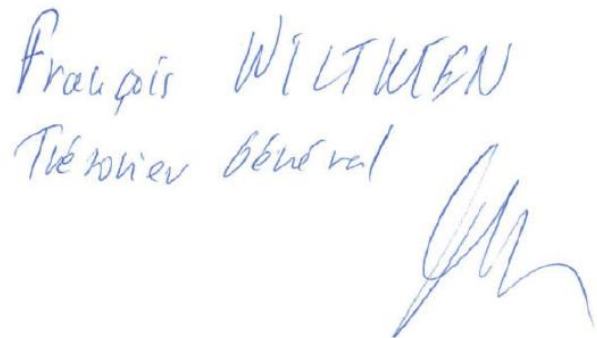 François WILTKIEN
Trésorier Général